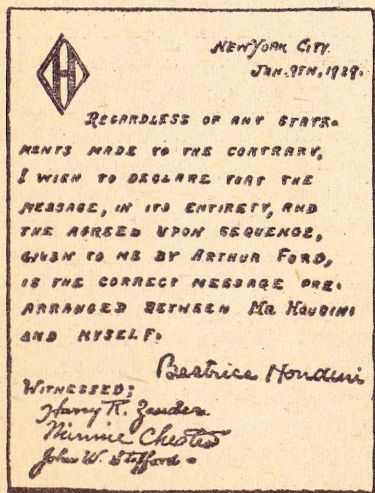 H
New York City.
Jan. 9th, 1929.
Regardless of any state-
ments made to the contrary,
I wish to declare that the
message, in its entirety, and
the agreed upon sequence,
given to me by Arthur Ford,
is the correct message pre-
arranged between Mr. Houdini
and myself.
Beatrice Houdini
Witnessed:
Harry R. Zander
Minnie Chester
John W. Stafford